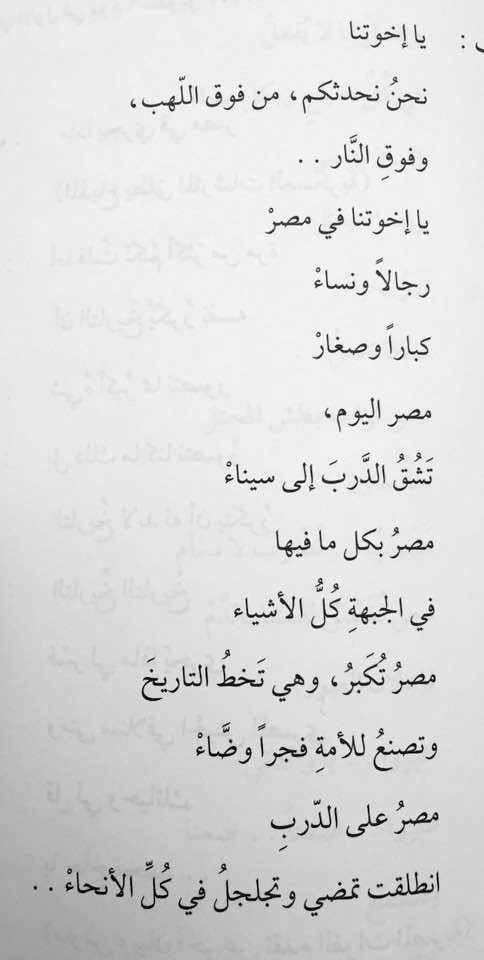 يا إخوتنا
نحنُ نحدثكم، من فوق اللّهب،
وفوقِ النَّار . .
يا إخوتنا في مصرْ
رجالاً ونساءْ
كباراً وصغارْ
مصر اليوم،
تَشُقُ الدَّربَ إلى سيناءْ
مصرُ بكل ما فيها
في الجبهةِ كُلُّ الأشياء
مصرُ تُكَبرُ، وهي تَخطُ التاريخَ
وتصنعُ للأمةِ فجراً وضَّاءْ
مصرُ على الدّربِ
انطلقت تمضي وتجلجلُ في كُلِّ الأنحاءْ . .